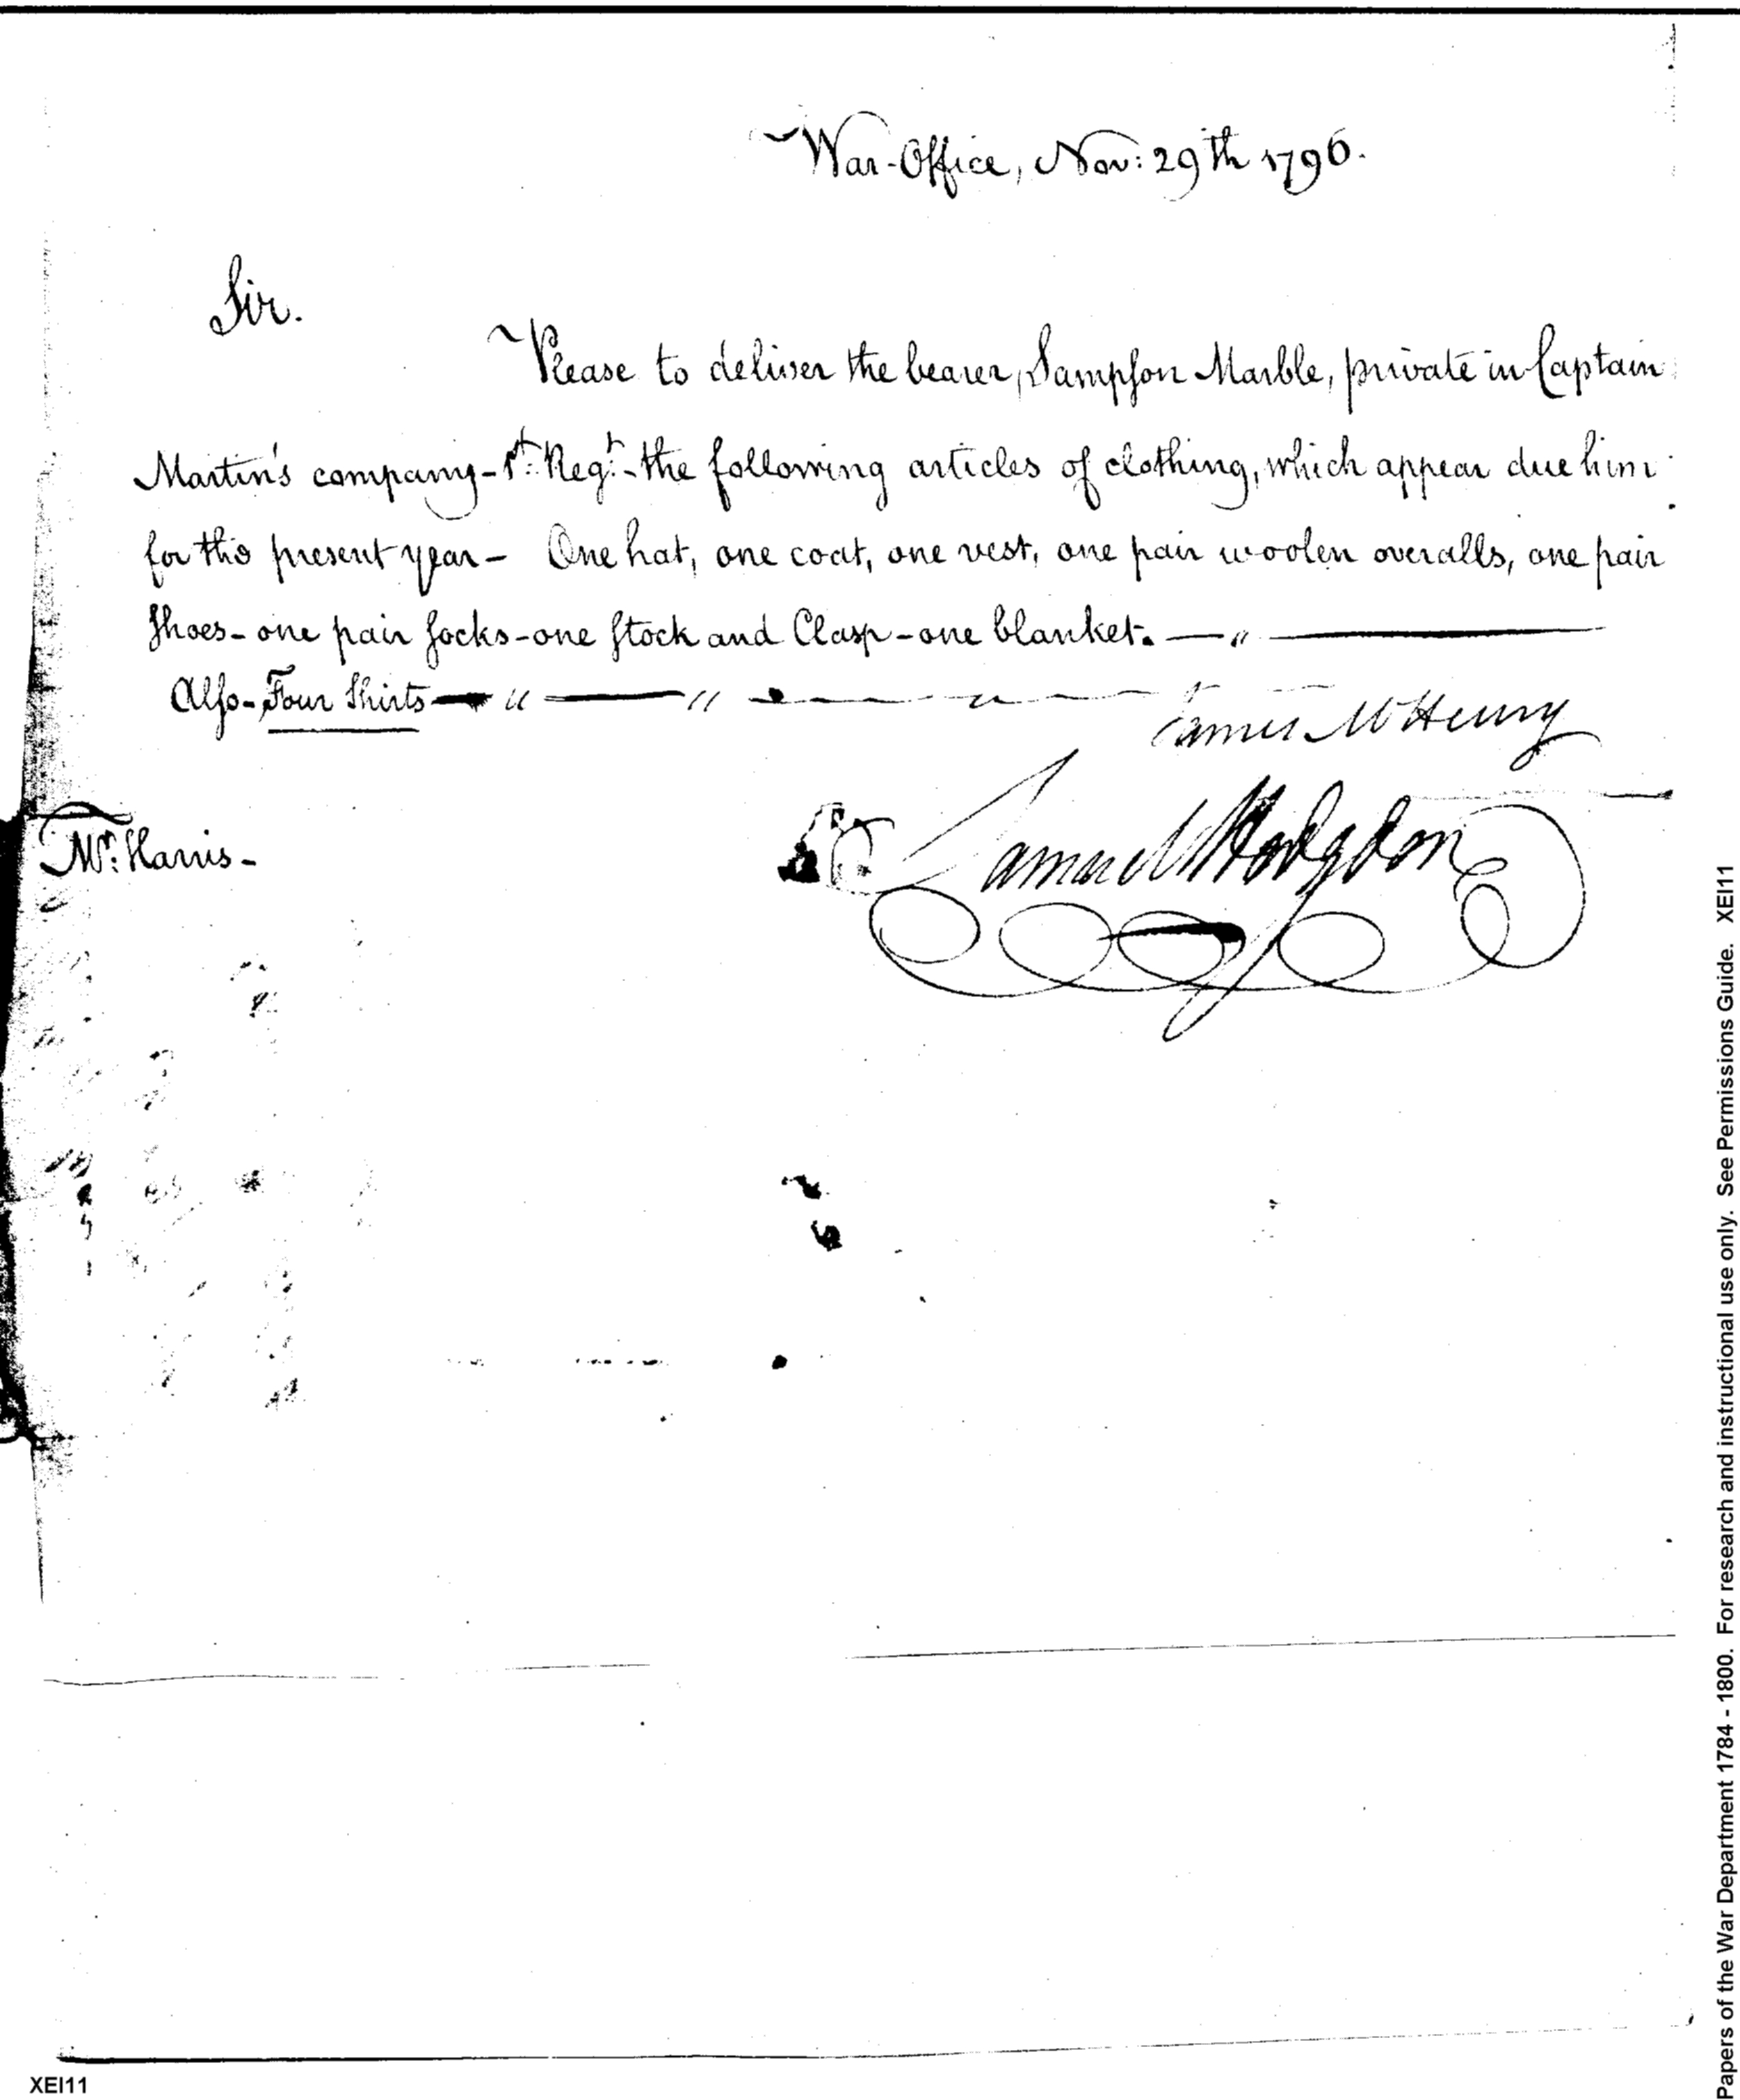 War-Office, Nov: 29th 1796.
Sir.
Please to deliver the bearer, Sampson Marble, private in Captain
Martin's company - 1st: Regt: - the following articles of clothing, which appear due him
for this present year - One hat, one coat, one vest, one pair woolen overalls, one pair
Shoes - one pair socks - one stock and Clasp - one blanket. — " —
Also - Four Shirts — " — " —
James McHenry
Samuel Hodgdon
Mr: Harris -
Papers of the War Department 1784 - 1800. For research and instructional use only. See Permissions Guide. XEI11
XEI11